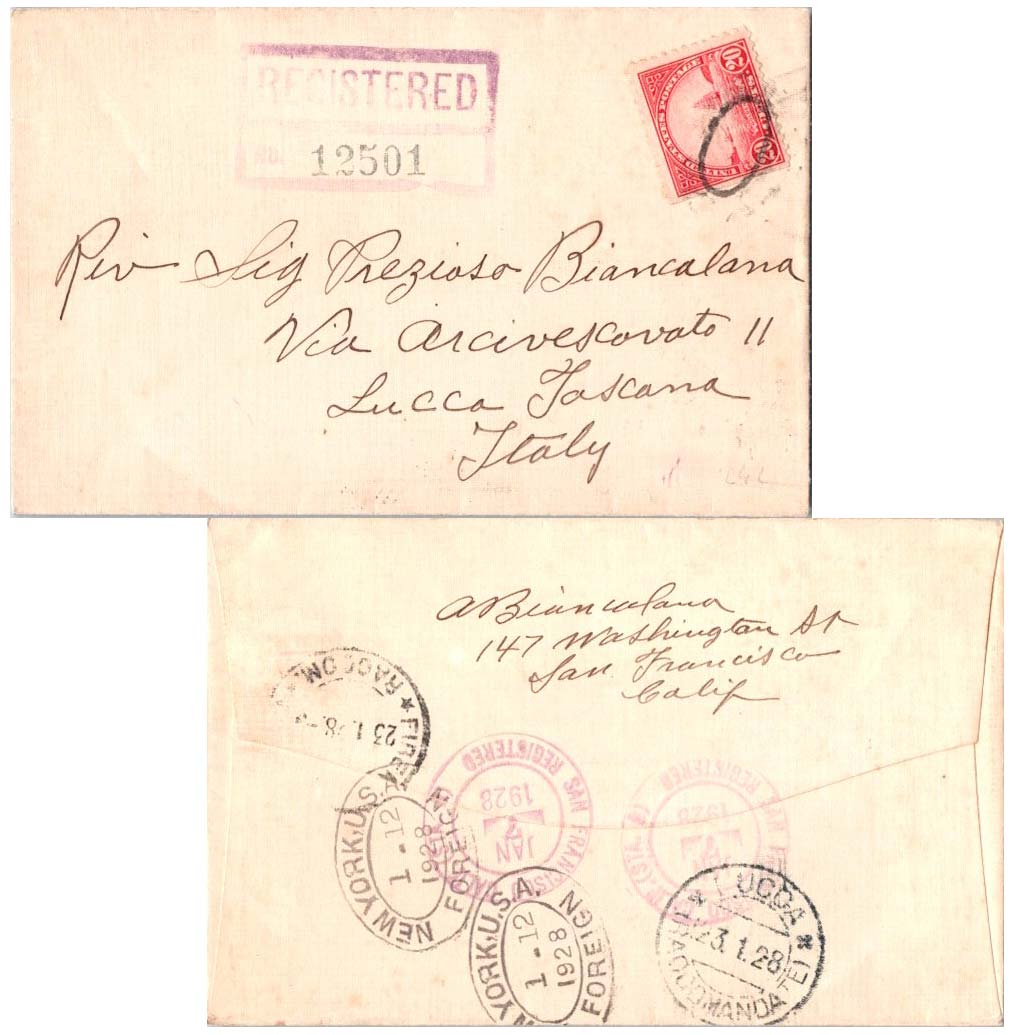 REGISTERED
NO. 12501
20
UNITED STATES POSTAGE
Riv Sig Prezioso Biancalana
Via Arcivescovato 11
Lucca Toscana
Italy
ABiancalana
147 Washington St
San Francisco
Calif
RACCOM
23.1.28
NEW YORK, U.S.A.
1-12
1928
FOREIGN
REGISTERED
SAN FRANCISCO
JAN
7
1928
REGISTERED
1928
NEW YORK, U.S.A.
1-12
1928
FOREIGN
LUCCA
23.1.28
(RACCOMANDATE)